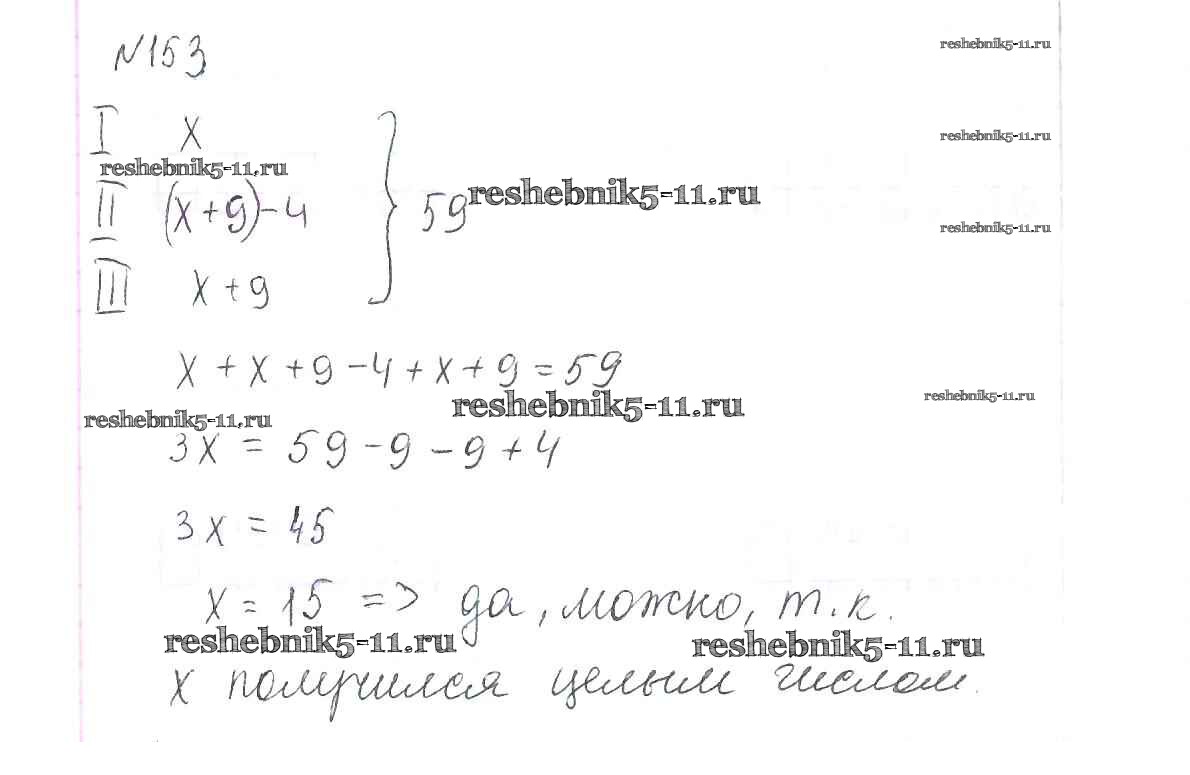 №153
reshebnik5-11.ru
I x
reshebnik5-11.ru
reshebnik5-11.ru
II (x+9)-4 } 59 reshebnik5-11.ru
reshebnik5-11.ru
III x+9
x + x + 9 - 4 + x + 9 = 59
reshebnik5-11.ru
reshebnik5-11.ru
reshebnik5-11.ru
3x = 59 - 9 - 9 + 4
3x = 45
x = 15 => да, можно, т.к.
reshebnik5-11.ru
reshebnik5-11.ru
x получился целым числом.